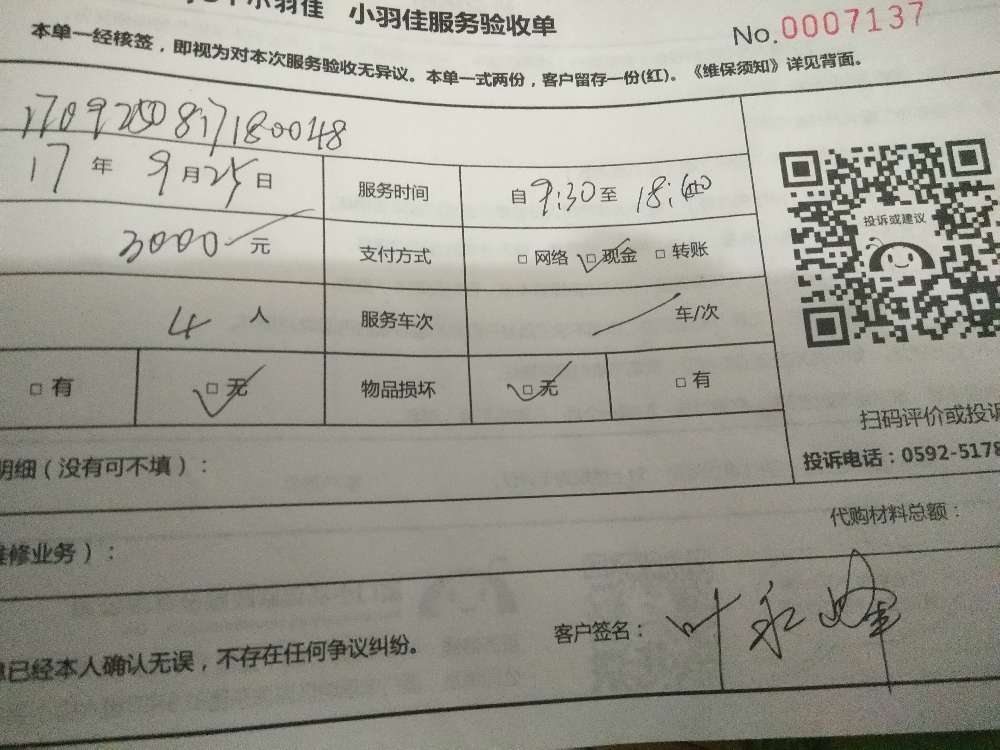 小羽佳 小羽佳服务验收单
No.0007137
本单一经核签，即视为对本次服务验收无异议。本单一式两份，客户留存一份(红)。《维保须知》详见背面。
17 年 9 月 25 日 服务时间 自 9:30 至
3000 元 支付方式 □ 网络 □ 现金 □ 转账
投诉或建议
4 人 服务车次 车/次
□ 有 □ 无 物品损坏 □ 无 □ 有
扫码评价或投诉
明细（没有可不填）：
投诉电话：0592-5178
代购材料总额：
维修业务）：
客户签名： 叶永
已经本人确认无误，不存在任何争议纠纷。